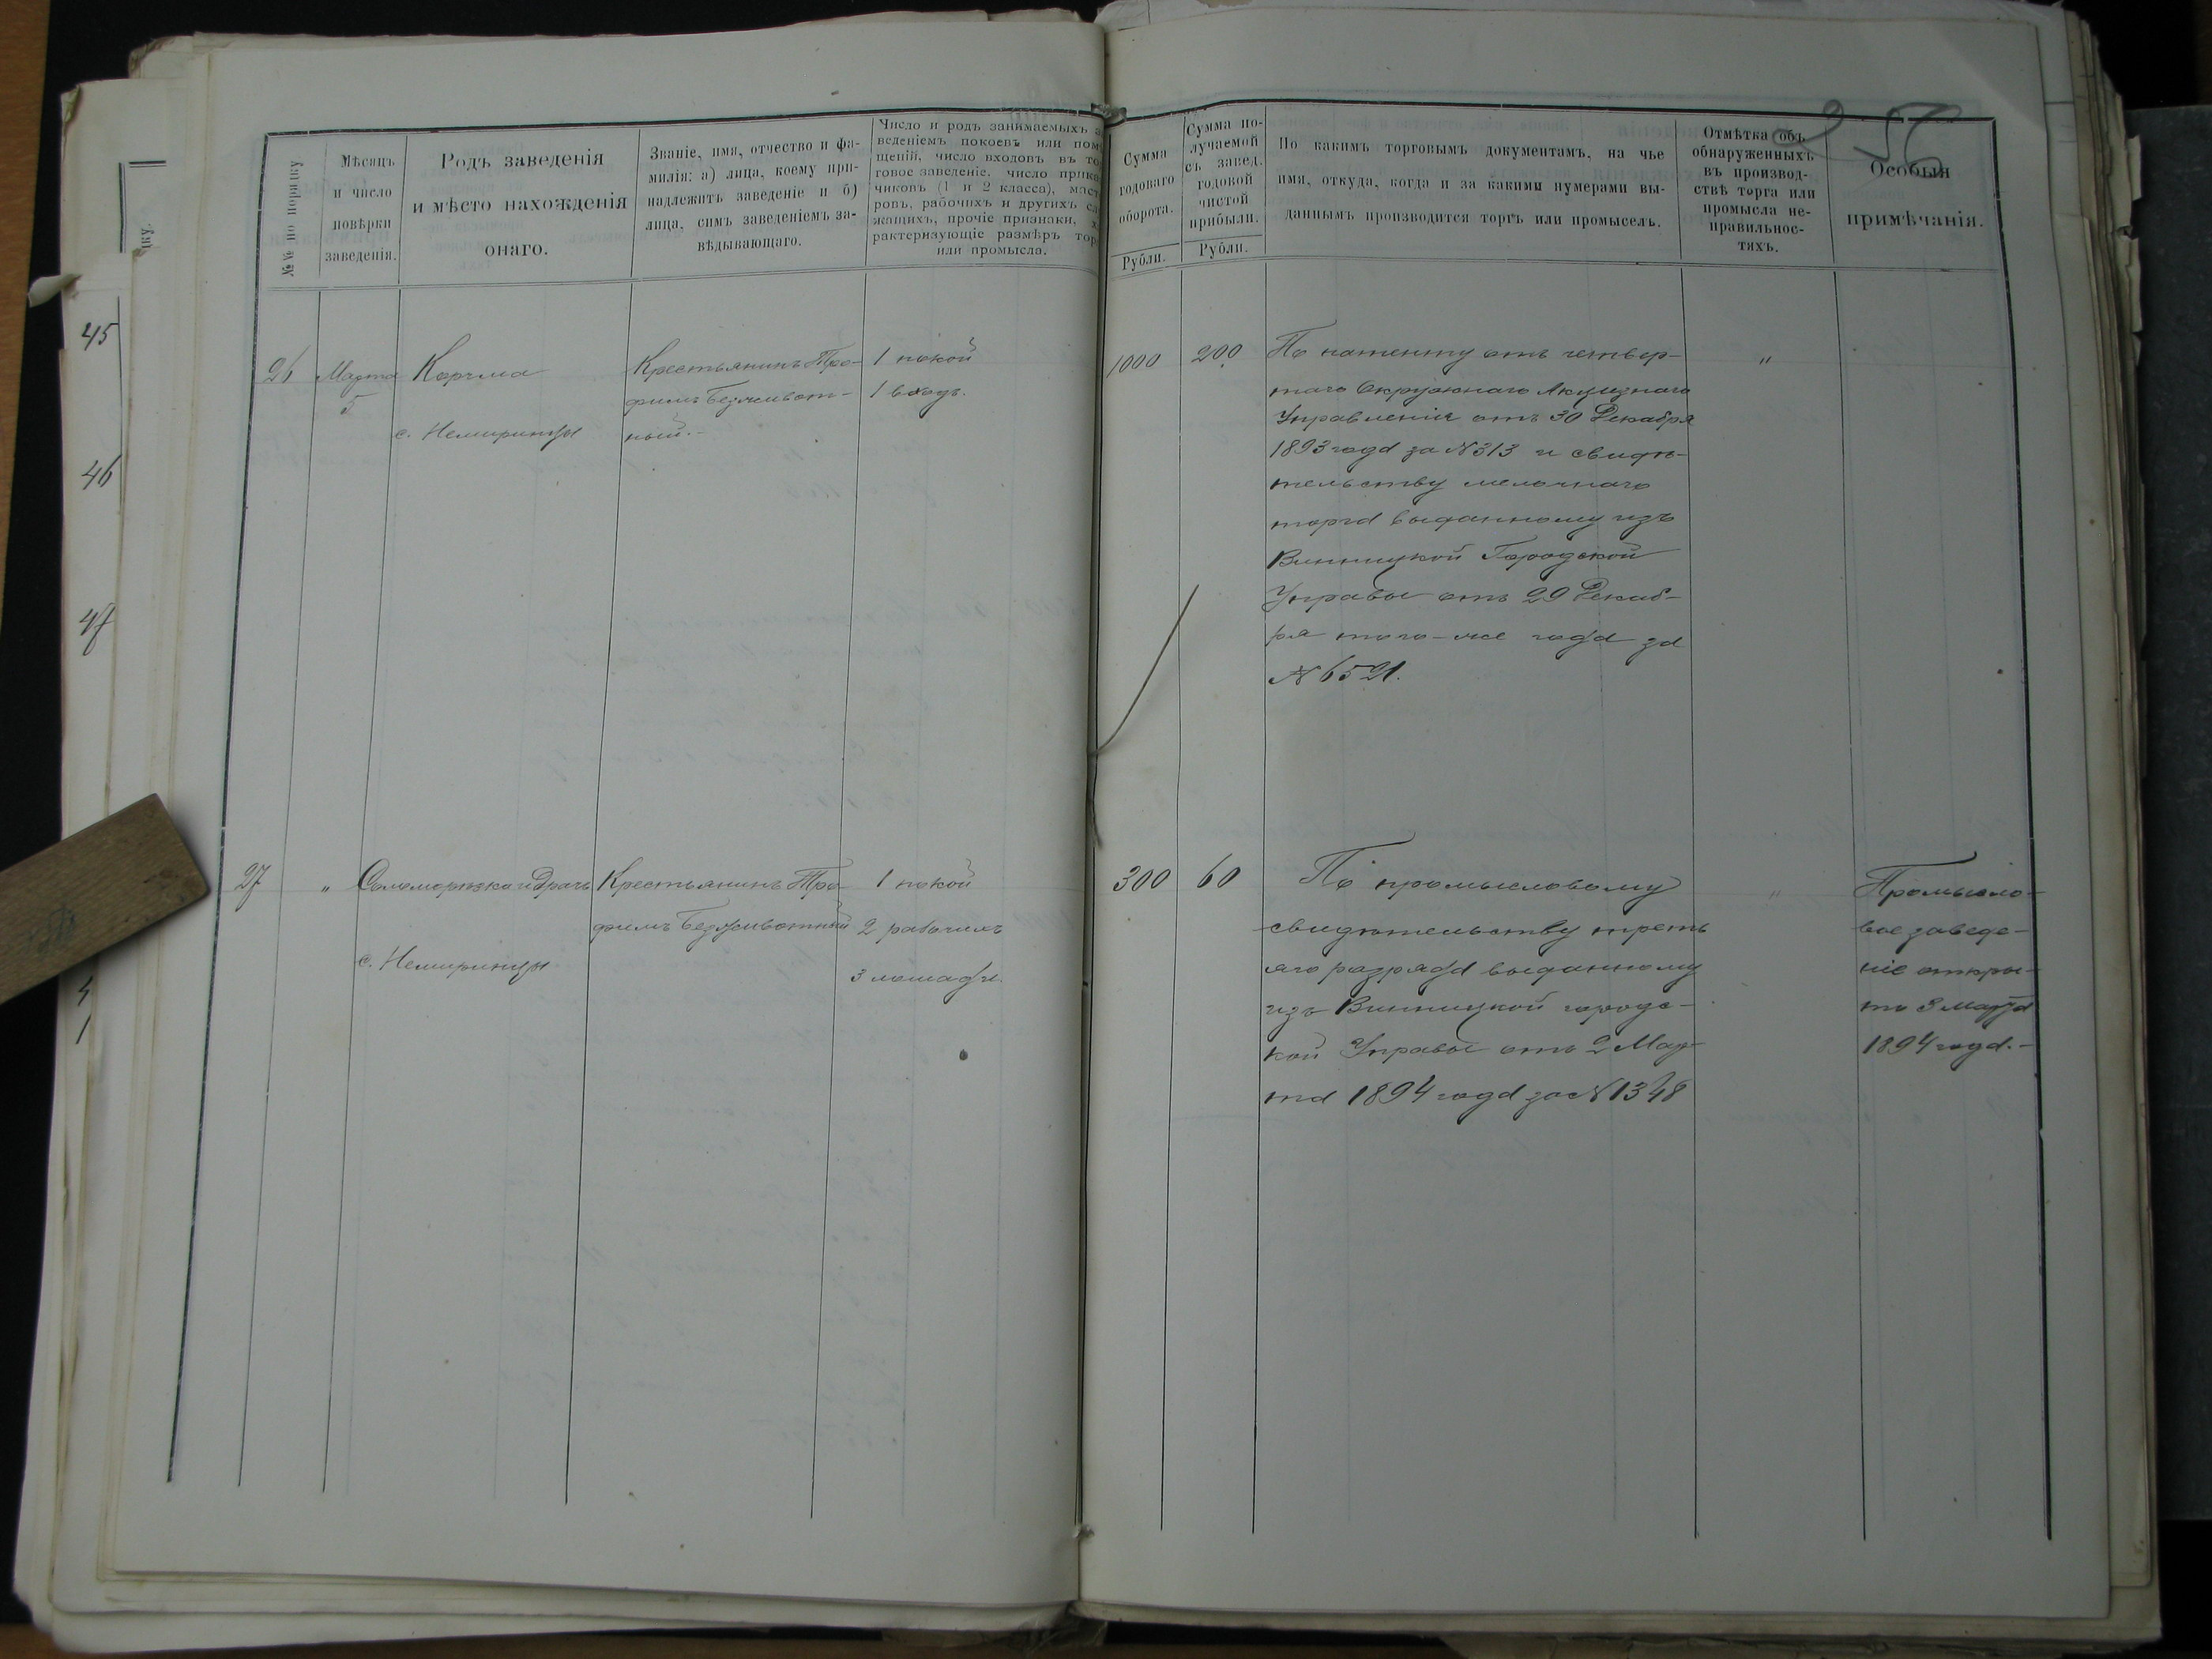 №№ по порядку
Мѣсяцъ
и число
повѣрки
заведенія.
Родъ заведенія
и мѣсто нахожденія
онаго.
Званіе, имя, отчество и фа-
милія: а) лица, коему при-
надлежитъ заведеніе и б)
лица, симъ заведеніемъ за-
вѣдывающаго.
Число и родъ занимаемыхъ
веденіемъ покоевъ или
щеній, число входовъ въ
говое заведеніе, число
чиковъ (1 и 2 класса),
ровъ, рабочихъ и другихъ
жащихъ, прочіе признаки,
рактеризующіе размѣръ
или промысла.
Сумма
годоваго
оборота.
Рубли.
Сумма по-
лучаемой
съ завед.
годовой
чистой
прибыли.
Рубли.
По какимъ торговымъ документамъ, на чье
имя, откуда, когда и за какими нумерами вы-
даннымъ производится торгъ или промыселъ.
Отмѣтка объ
обнаруженныхъ
въ производ-
ствѣ торга или
промысла не-
правильнос-
тяхъ.
Особыя
примѣчанія.
45
46
47
26
Марта
5
Корчма
с. Немиринцы
Крестьянинъ Тро-
фимъ Безживот-
ный.-
1 покой
1 входъ.
1000
200
По патенту отъ четвер-
таго Окружнаго Акцизнаго
Управленія отъ 30 Декабря
1893 года за №313 и свидѣ-
тельству мелочнаго
торга выданному изъ
Винницкой Городской
Управы отъ 29 Декаб-
ря того-же года за
№ 6521.
"
27
"
Соломорѣзка и драчъ
с. Немиринцы
Крестьянинъ Тро-
фимъ Безживотный
1 покой
2 рабочихъ
3 лошади.
300
60
По промысловому
свидѣтельству треть
яго разряда выданному
изъ Винницкой городс-
кой Управы отъ 2 Мар-
та 1894 года за №1348
"
Промысло-
вое заведе-
ніе откры-
то 3 Марта
1894 года.-